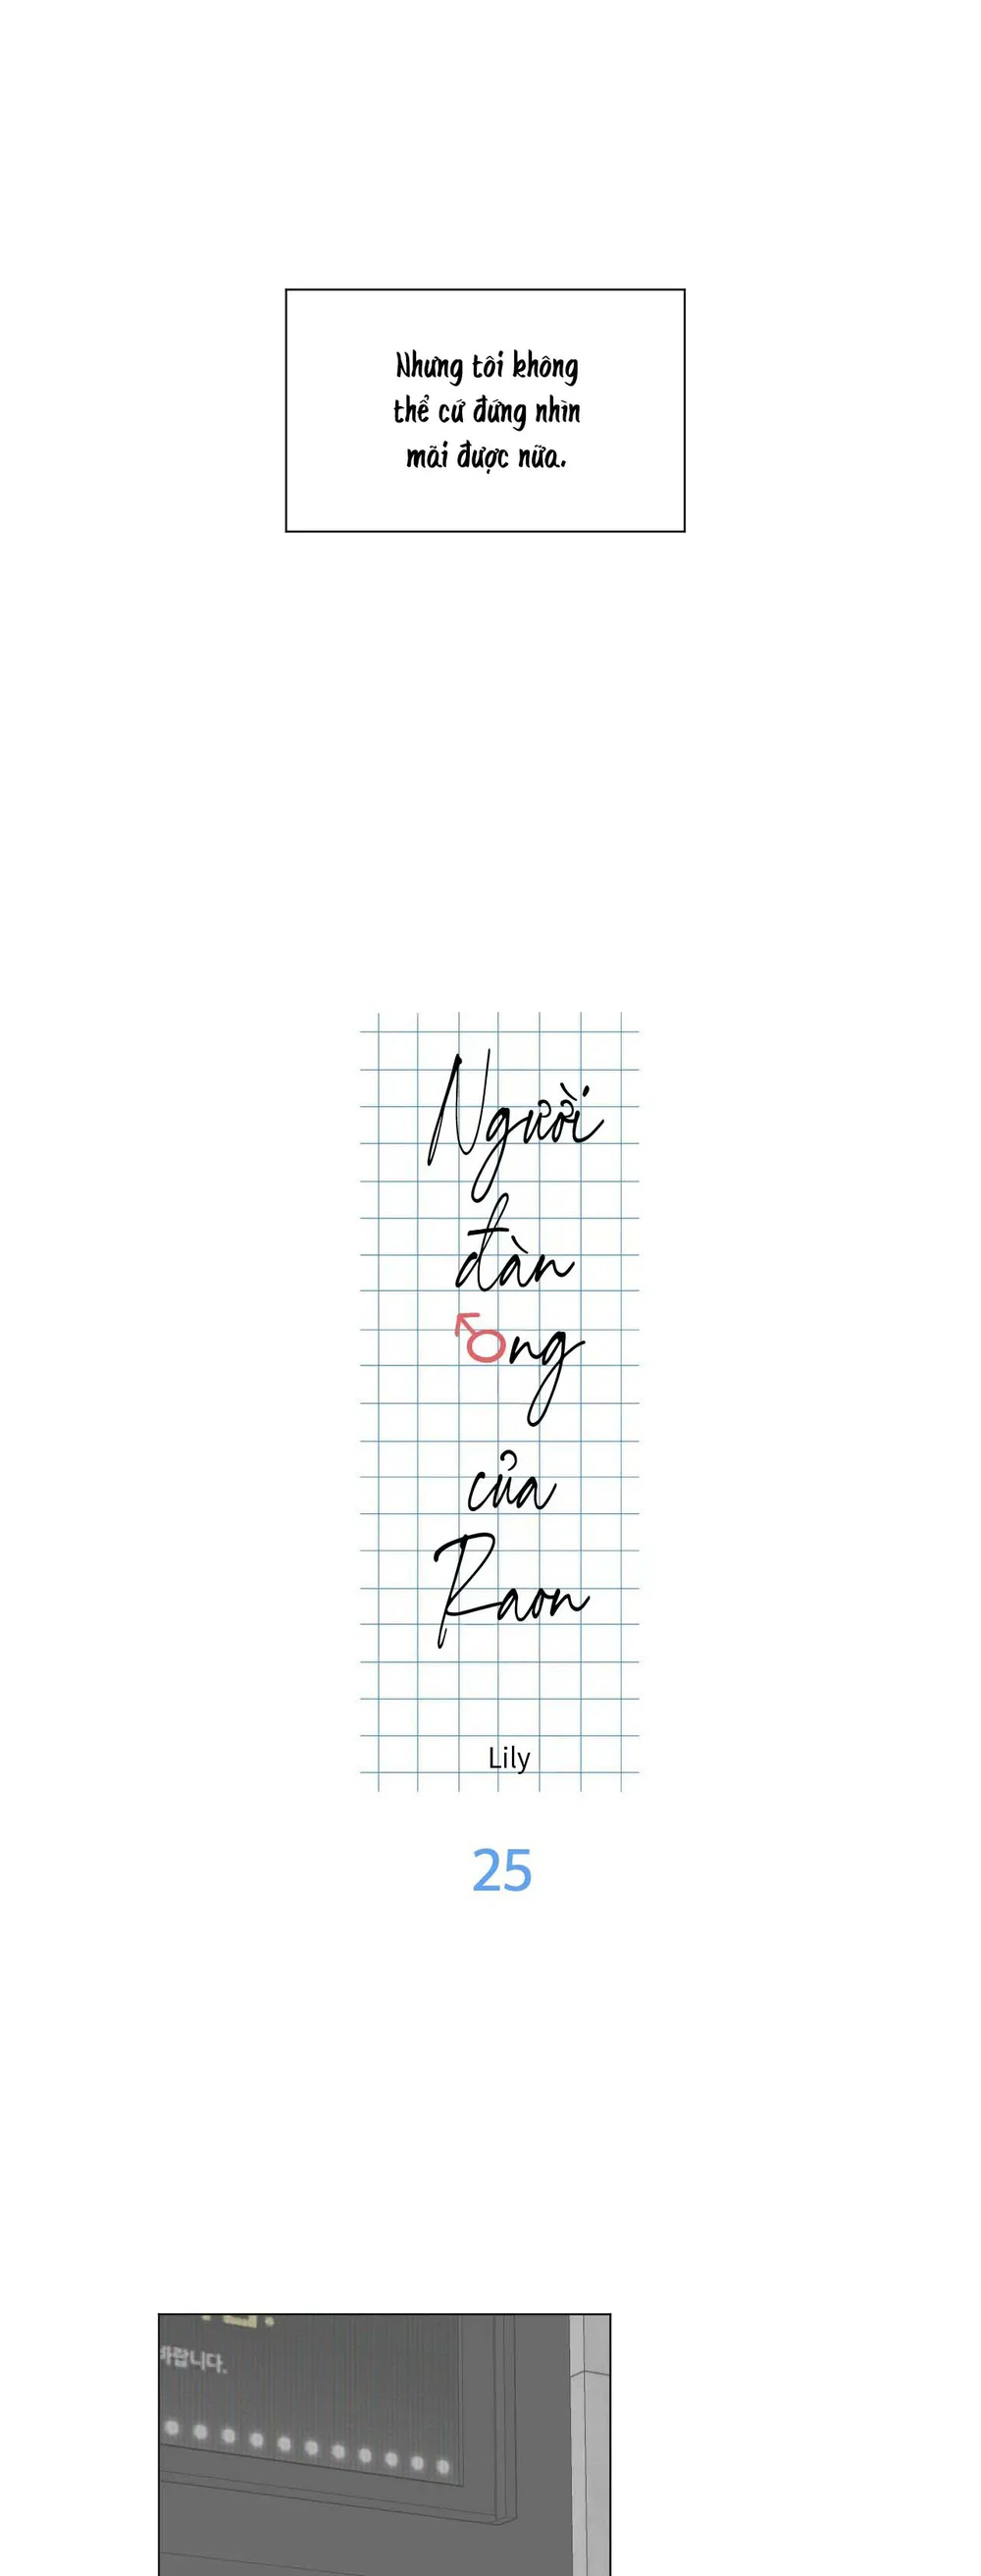 Nhưng tôi không
thể cứ đứng nhìn
mãi được nữa.
Người
đàn
ông
của
Raon
Lily
25
바랍니다.